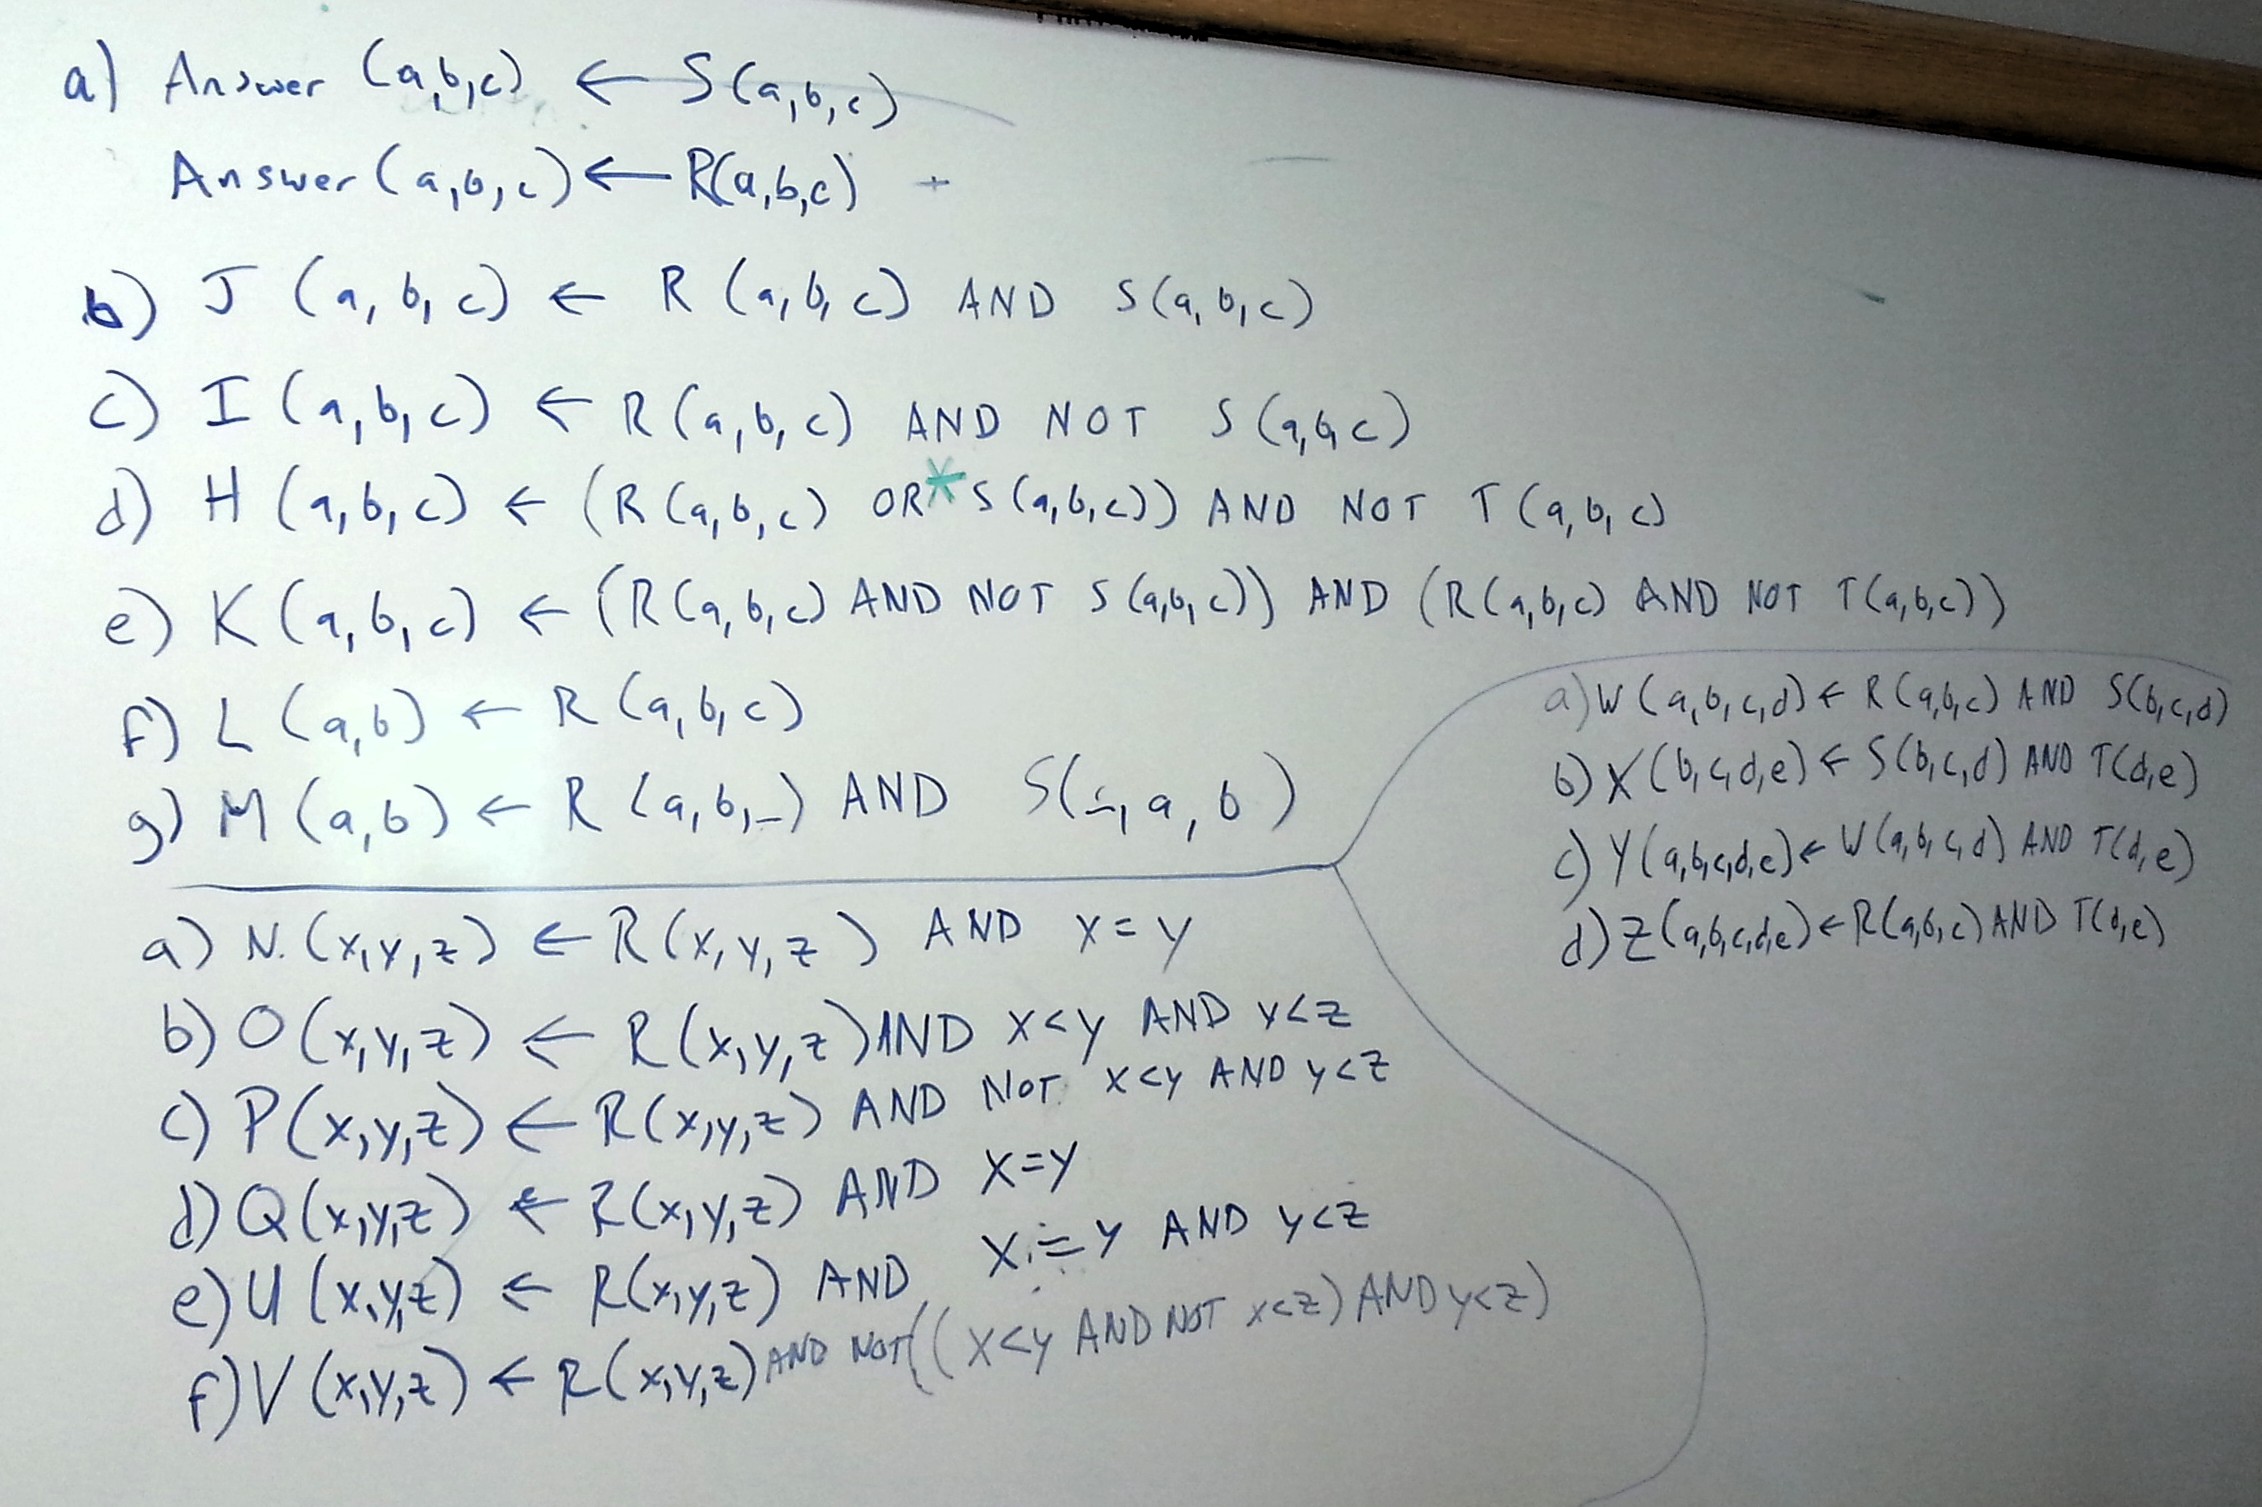 a) Answer (a,b,c) ← S(a,b,c)
Answer (a,b,c) ← R(a,b,c)
b) J (a,b,c) ← R (a,b,c) AND S(a,b,c)
c) I (a,b,c) ← R(a,b,c) AND NOT S(a,b,c)
d) H (a,b,c) ← (R(a,b,c) OR* S(a,b,c)) AND NOT T(a,b,c)
e) K(a,b,c) ← (R(a,b,c) AND NOT S(a,b,c)) AND (R(a,b,c) AND NOT T(a,b,c))
f) L (a,b) ← R (a,b,c)
g) M (a,b) ← R (a,b,_) AND S(_,a,b)
a) N (x,y,z) ← R(x,y,z) AND x=y
b) O(x,y,z) ← R(x,y,z) AND x<y AND y<z
c) P(x,y,z) ← R(x,y,z) AND NOT x<y AND y<z
d) Q(x,y,z) ← R(x,y,z) AND x=y
e) U (x,y,z) ← R(x,y,z) AND x=y AND y<z
f) V (x,y,z) ← R(x,y,z) AND NOT((x<y AND NOT x<z) AND y<z)
a) W(a,b,c,d) ← R(a,b,c) AND S(b,c,d)
b) X(b,c,d,e) ← S(b,c,d) AND T(d,e)
c) Y(a,b,c,d,e) ← W(a,b,c,d) AND T(d,e)
d) Z(a,b,c,d,e) ← R(a,b,c) AND T(d,e)